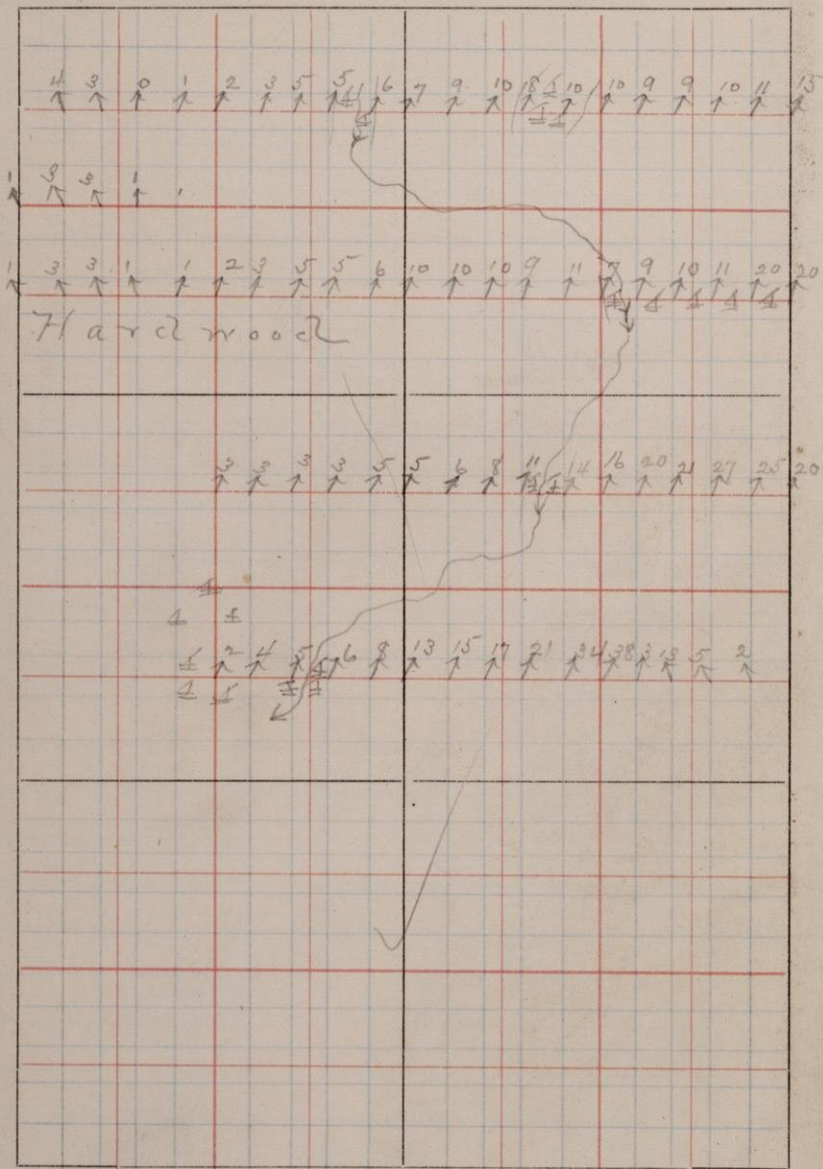 4 3 0 1 2 3 5 5 6 7 9 10 18 10 10 9 9 10 11 15
1 3 3 1
1 3 3 1 1 2 3 5 5 6 10 10 10 9 11 7 9 10 11 20 20
Hardwood
3 3 3 3 5 5 6 8 11 14 16 20 21 27 25 20
2 4 5 6 8 13 15 17 21 34 38 3 18 5 2